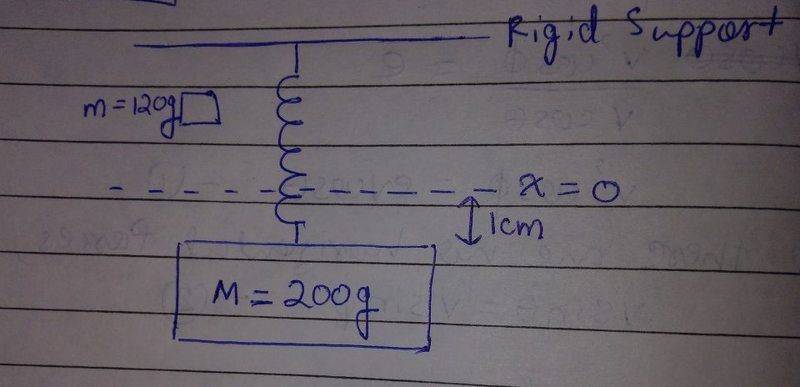 Rigid Support
m=120g
x = 0
1cm
M = 200g